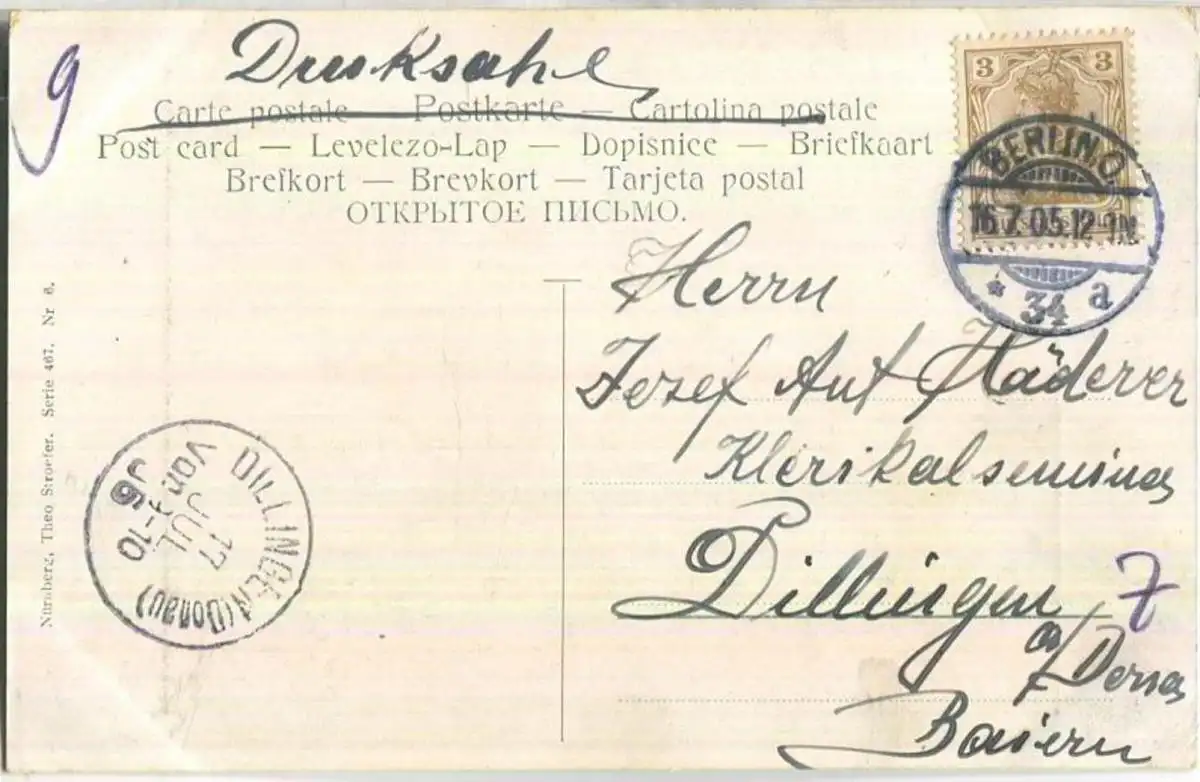 9
Drucksache
Carte postale — Postkarte — Cartolina postale
Post card — Levelezo-Lap — Dopisnice — Briefkaart
Brefkort — Brevkort — Tarjeta postal
ОТКРЫТОЕ ПИСЬМО.
3 3
BERLIN.O
16.7.05.12-1N.
* 34 a
Herrn
Josef Ant Häderer
Klerikalseminar
Dillingen
7
a/Donau
Baiern
DILLINGEN (Donau)
17 JUL
Vor. 9-10
Nürnberg, Theo Stroefer. Serie 467. Nr 6.